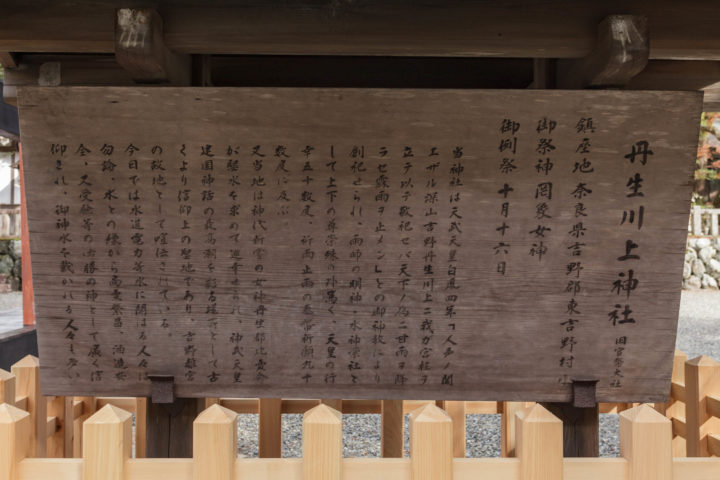 丹生川上神社 旧官幣大社
鎮座地 奈良県吉野郡東吉野村小
御祭神 罔象女神
御例祭 十月十六日
当神社は天武天皇白鳳四年「人声ノ聞
エザル深山吉野丹生川上ニ我ガ宮柱ヲ
立テ以テ敬祀セバ天下ノ為ニ甘雨ヲ降
ラセ霖雨ヲ止メン」との御神教により
創祀せられ、雨師の明神・水神宗社と
して上下の尊崇殊の外篤く、天皇の行
幸五十数度、祈雨止雨の奉幣祈願九十
数度に及ぶ。
又当地は神代
が聖水を求めて
建国神話の最高潮を彩る場所として古
くより信仰上の聖地であり、吉野離宮
の故地として喧伝されている。
今日では水道電力等水に関はる人々は
勿論、水との縁から商売繁昌、酒造安
全、又受験等の必勝の神として広く信
仰され、御神水を戴かれる人々も多い